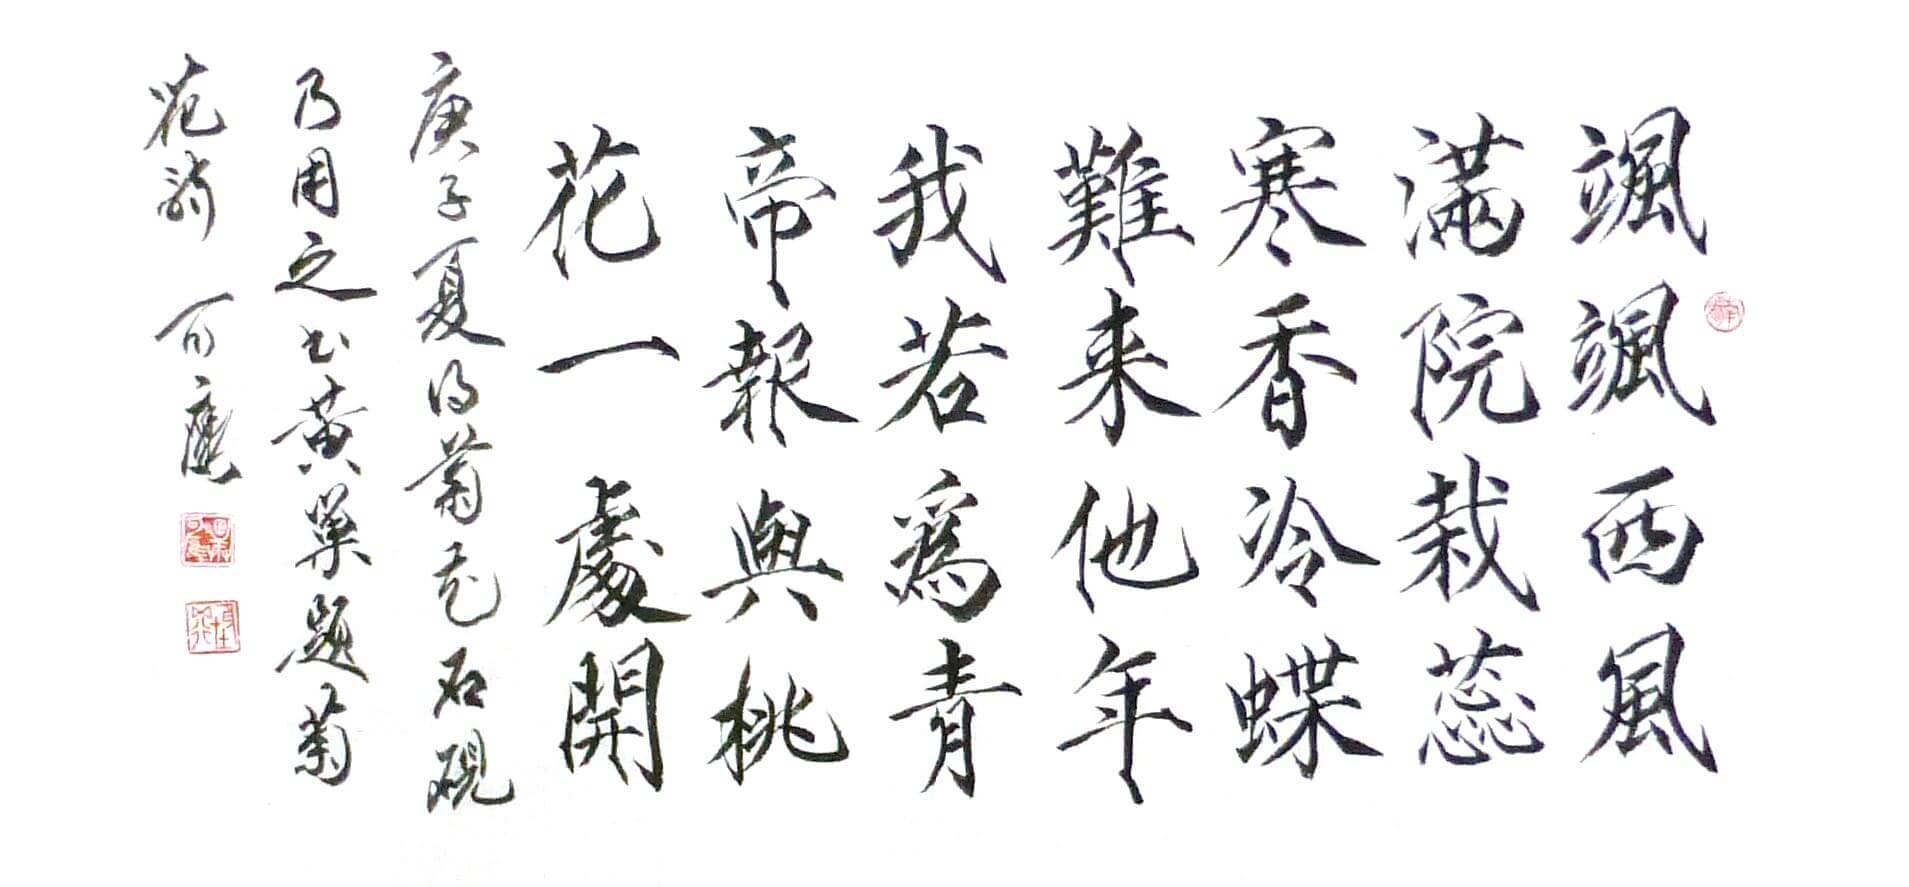 颯颯西風
滿院栽蕊
寒香冷蝶
難来他年
我若為青
帝報與桃
花一處開
庚子夏得菊花石硯
乃用之書黃巢題菊
花詩 百鷹